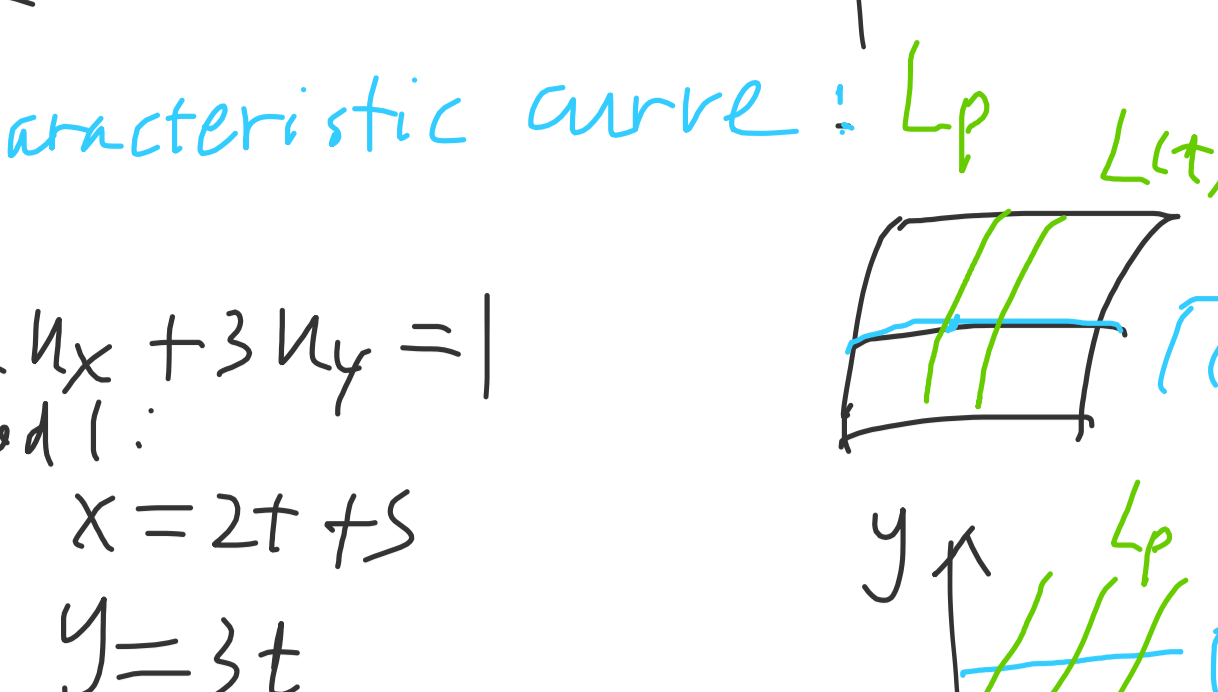 aracteristic curve : Lp
L(t,
ux + 3uy = 1
od 1 :
x = 2t + s
y = 3t
y
Lp